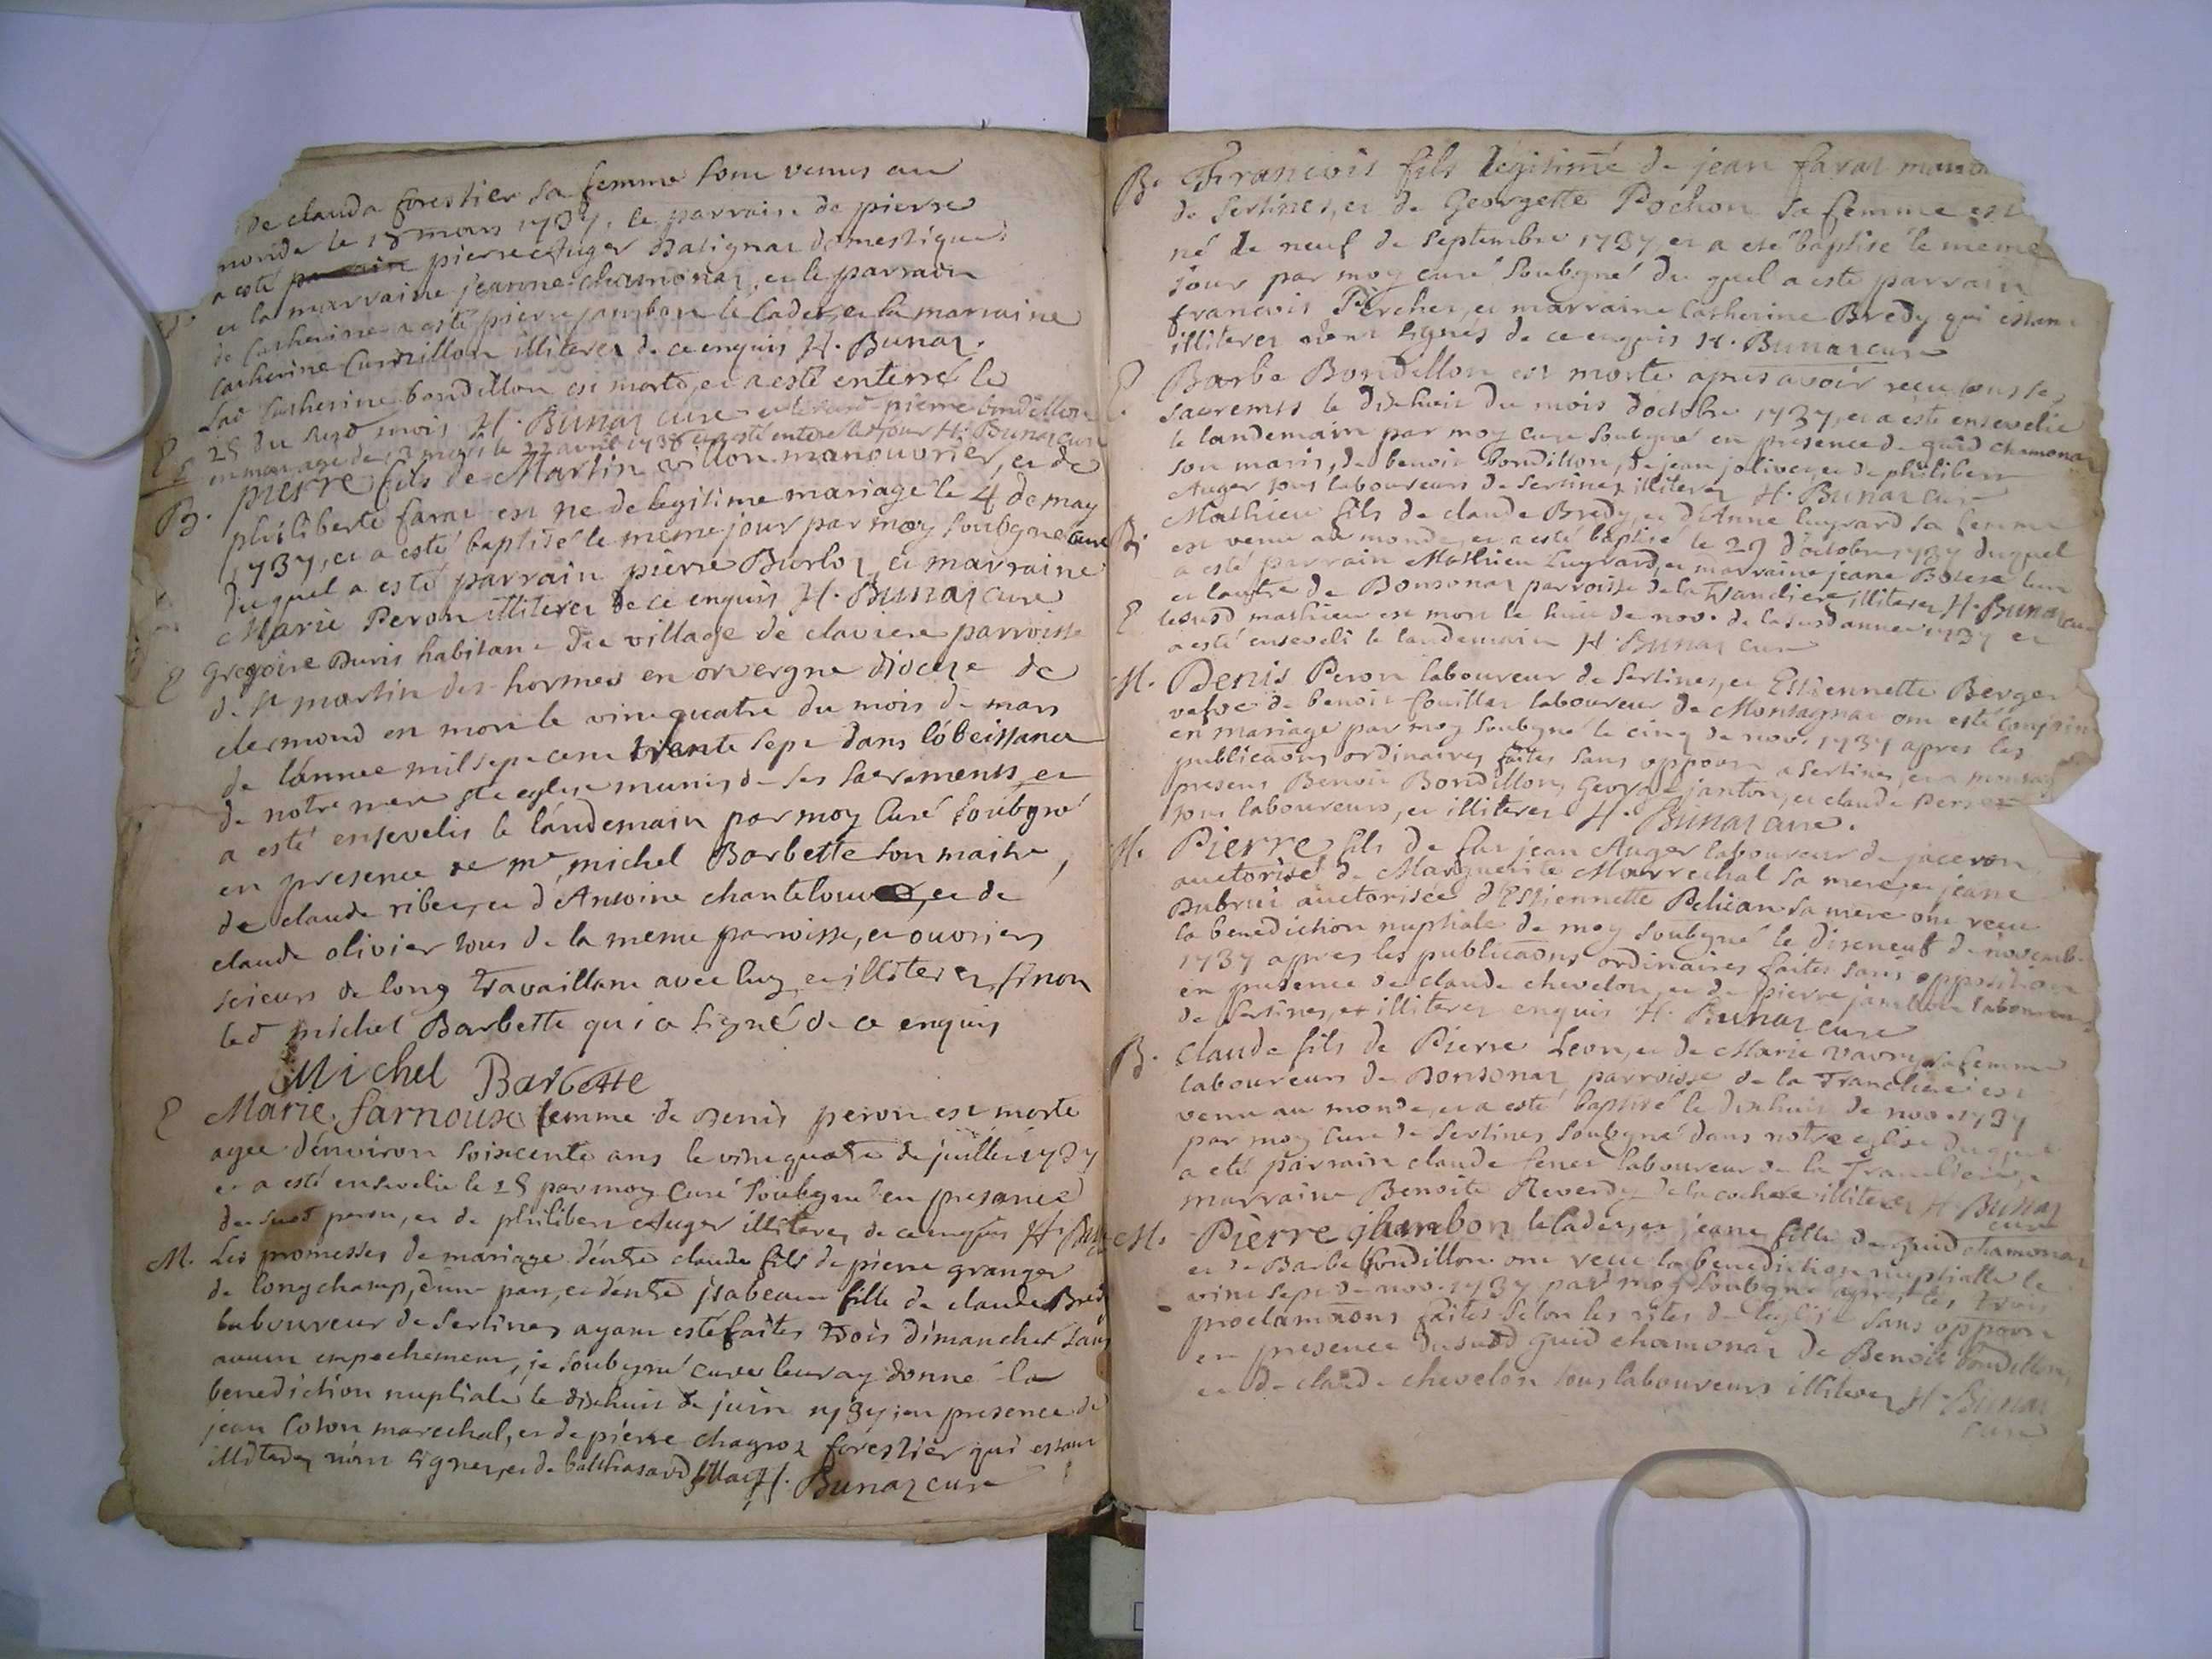 de clauda forestier sa femme sont venus au
monde le 18 mars 1737, le parrain de pierre
a esté pierre Auger Balignar domestique
et la marraine jeanne chamonar, et le parrain
de Catherine a esté pierre jambon le Cadet, et la marraine
Catherine illiterez de ce enquis H. Bunaz.
Lad Catherine bondillon est morte, et a esté enterré le
25 du susd mois H. Bunaz curé pierre bondillon
le 22 avril 1738 H. Bunaz curé
B. pierre fils de Martin villon manouvrier, et de
philiberte farar est né de legitime mariage le 4 de may
1737, et a esté baptisé le meme jour par moy soubgné curé
duquel a esté parrain pierre Burloz, et marraine
Marie Peron illiterez de ce enquis H. Bunaz curé
E Gregoire Duris habitant du village de claviere parroisse
de st martin des hormes en orvergne diocese de
clermond en mort le vint quatre du mois de mars
de l'année mil sept cent trente sept dans l'óbeissance
de notre mere ste eglise munis de ses sacrements et
a esté ensevelis le landemain par moy Curé soubgné
en presence de me michel Barbette son maitre,
de claude ribes, et d'Antoine chantelouve, et de
claude olivier tous de la meme parroisse, et ouvriers
scieurs de long travaillant avec luy et illiterez, sinon
led michel Barbette qui a signé de ce enquis
Michel Barbette
E Marie farnoux femme de Denis peron est morte
agée d'environ soixcente ans le vint quatre de juillet 1737
et a esté ensevelie le 25 par moy Curé soubgné en presance
du susd peron, et de philibert Auger illiterez de ce enquis H. Bun
M. Les promesses de mariage d'entre claude fils de pierre granger
de longchamp, d'une part, et d'entre jsabeau fille de claude Bred
laboureur de Sertines ayant esté faites trois dimanches sans
aucun empechement, je soubgné curé leur ay donné la
benediction nuptiale le dixhuit de juin 1737, en presence de
jean Coton marechal, et de pierre chagroz forestier qui estant
illiterez n'ont signez, et de balthasard H. Bunaz curé
B. Francois fils legitime de jean farar
de Sertines, et de Georgette Pochon sa femme est
né le neuf de Septembre 1737, et a eté baptisé le meme
jour par moy curé soubgné du quel a este parrain
francois Percher, et marraine Catherine Bredy qui estant
illiterez n'ont signés de ce enquis H. Bunaz curé
E Barbe Bondillon est morte apres avoir reçu tous les
sacremts le dixhuit du mois d'octobre 1737, et a esté ensevelie
le landemain par moy curé soubgné en presence de guid chamonar
son maris, de benoit Bondillon, de jean jolivet, et de philibert
Auger tous laboureurs de Sertines illiterez H. Bunaz curé
B. Mathieu fils de claude Bredy, et d'Anne lugrard sa femme
est venu au monde, et a esté baptisé le 29 d'octobre 1737 duquel
a esté parrain Mathieu Lugrard, et marraine jeane l'un
et l'autre de Bonsonar parroisse de la Tranclière illiterez H. Bunaz curé
E lesusd mathieu est mort le huit de nov. de lasusd année 1737 et
a esté enseveli le landemain H. Bunaz curé
M. Denis Peron laboureur de Sertines, et Estiennette Berger
vefve de benoit fouillar laboureur de Montagnar ont esté conjoins
en mariage par moy soubgné le cinq de nov. 1737 apres les
publicaons ordinaires faites sans oppoon a Sertines, et a montag
presens Benoit Bondillon, George janton, et claude
tous laboureurs, et illiterez H. Bunaz curé.
M. Pierre fils de feu jean Auger laboureur de jaceron
auctorisé de Marguerite Marrechal sa mere, et jeane
Dubrui auctorisée d'Estiennette Pelican sa mere ont reçu
la benediction nuptiale de moy soubgné le disneuf de novemb.
1737 apres les publicaons ordinaires faites sans opposition
en presence de claude chevelon, et de pierre jambon laboureurs
de Sertines, et illiterez enquis H. Bunaz curé
B. Claude fils de Pierre Leon, et de Marie vavry sa femme
laboureurs de Bonsonar parroisse de la Tranclière est
venu au monde, et a esté baptisé le dixhuit de nov. 1737
par moy curé de Sertines soubgné dans notre eglise duquel
a eté parrain claude laboureur de la Tranclière,
marraine Benoite Reverdy de la cochere illiterez H. Bunaz
curé
M. Pierre jambon le Cadet, et jeane fille de guid chamonar
et de Barbe bondillon ont reçu la benediction nuptialle le
vint sept de nov. 1737 par moy soubgné apres les trois
proclamaons faites selon les rites de l'eglise sans oppoon
en presence dususd guid chamonar de Benoit bondillon,
et de claude chevelon tous laboureurs illiterez H. Bunaz
curé